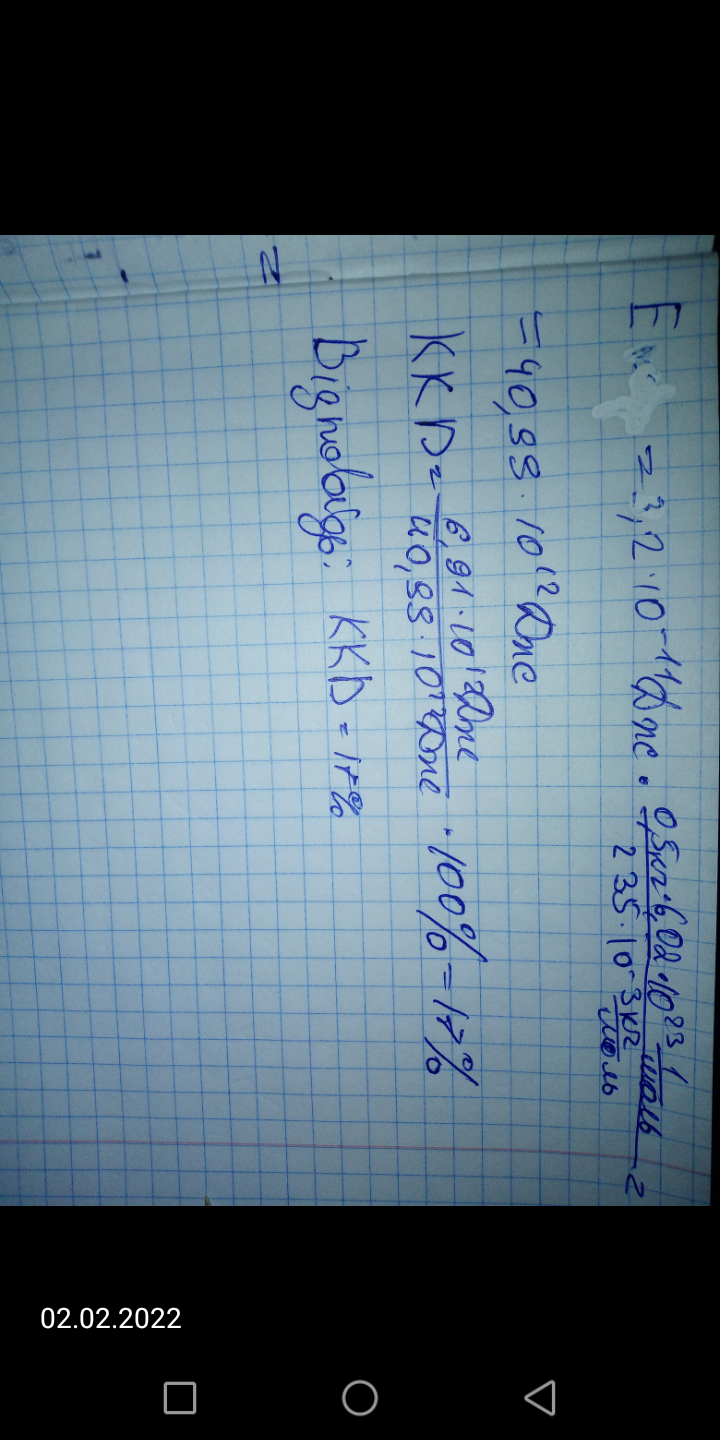 E = 3,2·10⁻¹¹Дже · 0,5кг·6,02·10²³ 1/моль / 235·10⁻³ кг/моль =
= 40,99·10¹²Дже
ККД = 6,91·10¹²Дже / 40,99·10¹²Дже · 100% = 17%
Відповідь: ККД = 17%
02.02.2022